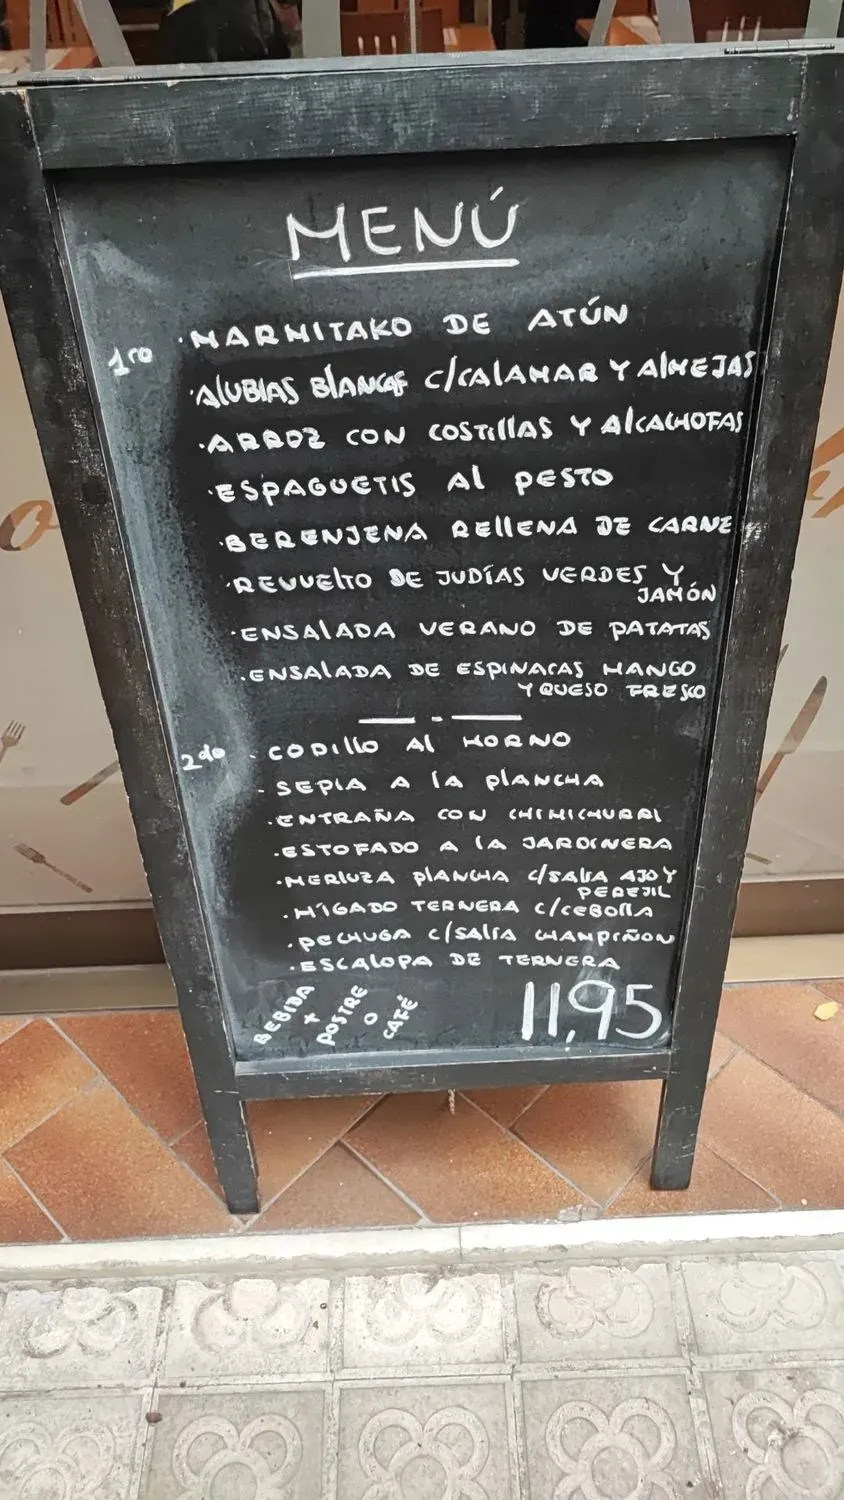 MENÚ
1ro · MARMITAKO DE ATÚN
· AlUBIAS BlANCAS C/CAlAMAR Y AlMEJAS
· ARROZ CON COSTIllAS Y AlCACHOFAS
· ESPAGUETIS Al PESTO
· BERENJENA REllENA DE CARNE
· REVUElTO DE JUDÍAS VERDES Y
JAMÓN
· ENSAlADA VERANO DE PATATAS
· ENSALADA DE ESPINACAS MANGO
Y QUESO FRESCO
2do · CODIllO Al HORNO
- SEPIA A lA PlANCHA
· ENTRAÑA CON CHIMICHURRI
· ESTOFADO A lA JARDINERA
· MERLUZA PlANCHA C/SAlSA AJO Y
PEREJIL
· HÍGADO TERNERA C/CEBOllA
· PECHUGA C/SALSA CHAMPIÑON
· ESCALOPA DE TERNERA
BEBIDA
+
POSTRE
O
CAFÉ
11,95